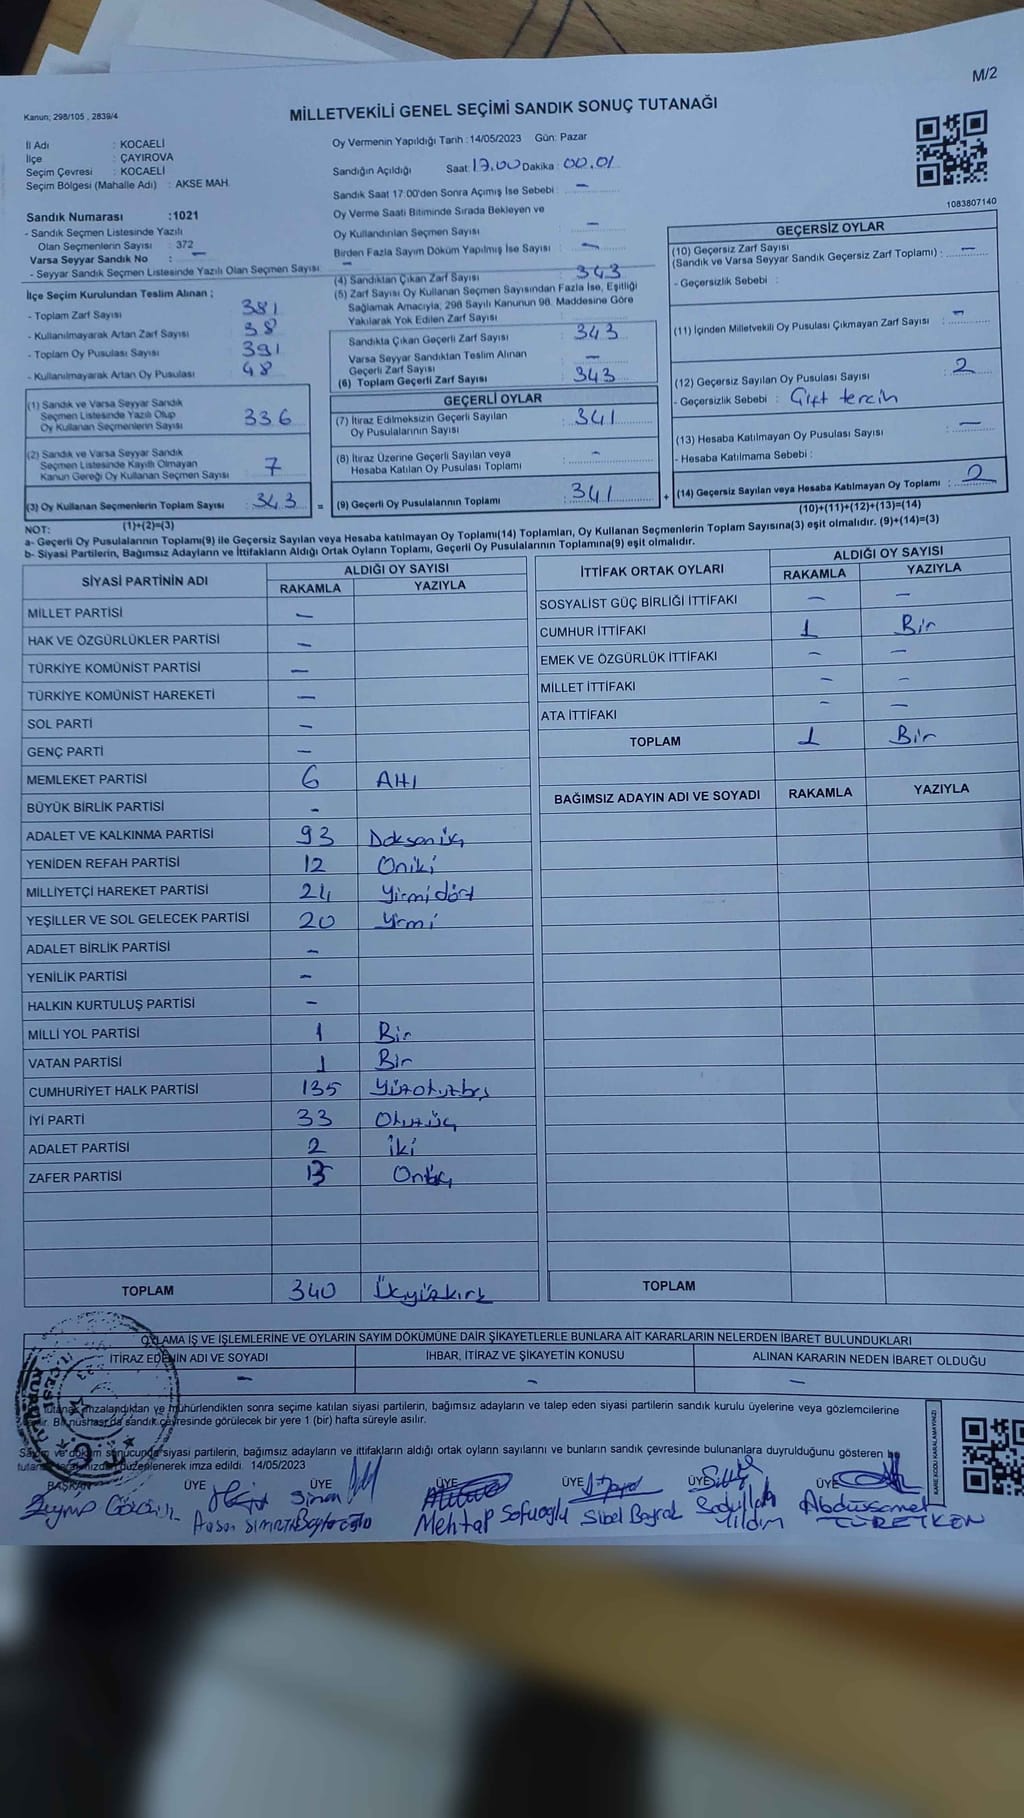 M/2
Kanun, 298/105 , 2839/4
MİLLETVEKİLİ GENEL SEÇİMİ SANDIK SONUÇ TUTANAĞI
İl Adı : KOCAELİ
İlçe : ÇAYIROVA
Seçim Çevresi : KOCAELİ
Seçim Bölgesi (Mahalle Adı) : AKSE MAH.
Sandık Numarası :1021
- Sandık Seçmen Listesinde Yazılı
Olan Seçmenlerin Sayısı : 372
Varsa Seyyar Sandık No : –
- Seyyar Sandık Seçmen Listesinde Yazılı Olan Seçmen Sayısı: –
Oy Vermenin Yapıldığı Tarih :14/05/2023 Gün: Pazar
Sandığın Açıldığı Saat 17.00 Dakika : 00.01
Sandık Saat 17:00'den Sonra Açılmış İse Sebebi : –
Oy Verme Saati Bitiminde Sırada Bekleyen ve
Oy Kullandırılan Seçmen Sayısı : –
Birden Fazla Sayım Döküm Yapılmış İse Sayısı : –
1083807140
İlçe Seçim Kurulundan Teslim Alınan ;
- Toplam Zarf Sayısı : 381
- Kullanılmayarak Artan Zarf Sayısı : 38
- Toplam Oy Pusulası Sayısı : 391
- Kullanılmayarak Artan Oy Pusulası : 48
(1) Sandık ve Varsa Seyyar Sandık
Seçmen Listesinde Yazılı Olup
Oy Kullanan Seçmenlerin Sayısı : 336
(2) Sandık ve Varsa Seyyar Sandık
Seçmen Listesinde Kayıtlı Olmayan
Kanun Gereği Oy Kullanan Seçmen Sayısı : 7
(3) Oy Kullanan Seçmenlerin Toplam Sayısı : 343
(1)+(2)=(3)
(4) Sandıktan Çıkan Zarf Sayısı : 343
(5) Zarf Sayısı Oy Kullanan Seçmen Sayısından Fazla İse, Eşitliği
Sağlamak Amacıyla, 298 Sayılı Kanunun 98. Maddesine Göre
Yakılarak Yok Edilen Zarf Sayısı :
Sandıkta Çıkan Geçerli Zarf Sayısı : 343
Varsa Seyyar Sandıktan Teslim Alınan
Geçerli Zarf Sayısı : –
(6) Toplam Geçerli Zarf Sayısı : 343
GEÇERLİ OYLAR
(7) İtiraz Edilmeksizin Geçerli Sayılan
Oy Pusulalarının Sayısı : 341
(8) İtiraz Üzerine Geçerli Sayılan veya
Hesaba Katılan Oy Pusulası Toplamı : –
= (9) Geçerli Oy Pusulalarının Toplamı : 341
GEÇERSİZ OYLAR
(10) Geçersiz Zarf Sayısı
(Sandık ve Varsa Seyyar Sandık Geçersiz Zarf Toplamı) : –
- Geçersizlik Sebebi :
(11) İçinden Milletvekili Oy Pusulası Çıkmayan Zarf Sayısı : –
(12) Geçersiz Sayılan Oy Pusulası Sayısı : 2
- Geçersizlik Sebebi : Çift tercih
(13) Hesaba Katılmayan Oy Pusulası Sayısı : –
- Hesaba Katılmama Sebebi :
+ (14) Geçersiz Sayılan veya Hesaba Katılmayan Oy Toplamı : 2
(10)+(11)+(12)+(13)=(14)
NOT:
a- Geçerli Oy Pusulalarının Toplamı(9) ile Geçersiz Sayılan veya Hesaba katılmayan Oy Toplamı(14) Toplamları, Oy Kullanan Seçmenlerin Toplam Sayısına(3) eşit olmalıdır. (9)+(14)=(3)
b- Siyasi Partilerin, Bağımsız Adayların ve İttifakların Aldığı Ortak Oyların Toplamı, Geçerli Oy Pusulalarının Toplamına(9) eşit olmalıdır.
SİYASİ PARTİNİN ADI ALDIĞI OY SAYISI
RAKAMLA YAZIYLA
MİLLET PARTİSİ –
HAK VE ÖZGÜRLÜKLER PARTİSİ –
TÜRKİYE KOMÜNİST PARTİSİ –
TÜRKİYE KOMÜNİST HAREKETİ –
SOL PARTİ –
GENÇ PARTİ –
MEMLEKET PARTİSİ 6 Altı
BÜYÜK BİRLİK PARTİSİ –
ADALET VE KALKINMA PARTİSİ 93 Doksanüç
YENİDEN REFAH PARTİSİ 12 Oniki
MİLLİYETÇİ HAREKET PARTİSİ 24 Yirmidört
YEŞİLLER VE SOL GELECEK PARTİSİ 20 Yirmi
ADALET BİRLİK PARTİSİ –
YENİLİK PARTİSİ –
HALKIN KURTULUŞ PARTİSİ –
MİLLİ YOL PARTİSİ 1 Bir
VATAN PARTİSİ 1 Bir
CUMHURİYET HALK PARTİSİ 135 Yüzotuzbeş
İYİ PARTİ 33 Otuzüç
ADALET PARTİSİ 2 İki
ZAFER PARTİSİ 13 Onüç
TOPLAM 340 Üçyüzkırk
İTTİFAK ORTAK OYLARI ALDIĞI OY SAYISI
RAKAMLA YAZIYLA
SOSYALİST GÜÇ BİRLİĞİ İTTİFAKI – –
CUMHUR İTTİFAKI 1 Bir
EMEK VE ÖZGÜRLÜK İTTİFAKI – –
MİLLET İTTİFAKI – –
ATA İTTİFAKI – –
TOPLAM 1 Bir
BAĞIMSIZ ADAYIN ADI VE SOYADI RAKAMLA YAZIYLA
TOPLAM
OYLAMA İŞ VE İŞLEMLERİNE VE OYLARIN SAYIM DÖKÜMÜNE DAİR ŞİKAYETLERLE BUNLARA AİT KARARLARIN NELERDEN İBARET BULUNDUKLARI
İTİRAZ EDENİN ADI VE SOYADI İHBAR, İTİRAZ VE ŞİKAYETİN KONUSU ALINAN KARARIN NEDEN İBARET OLDUĞU
– – –
imzalandıktan ve mühürlendikten sonra seçime katılan siyasi partilerin, bağımsız adayların ve talep eden siyasi partilerin sandık kurulu üyelerine veya gözlemcilerine
Bir nüshası da sandık çevresinde görülecek bir yere 1 (bir) hafta süreyle asılır.
Sayım ve döküm sonucunda siyasi partilerin, bağımsız adayların ve ittifakların aldığı ortak oyların sayılarını ve bunların sandık çevresinde bulunanlara duyrulduğunu gösteren
tutanak tarafımızdan düzenlenerek imza edildi. 14/05/2023
KARE KODU KARALAMAYINIZ!
BAŞKAN ÜYE ÜYE ÜYE ÜYE ÜYE ÜYE
Zeynep Sinan Mehtap Sofuoğlu Sibel Bayrak Sadullah Yıldım Abdüssamet TÜRETKEN